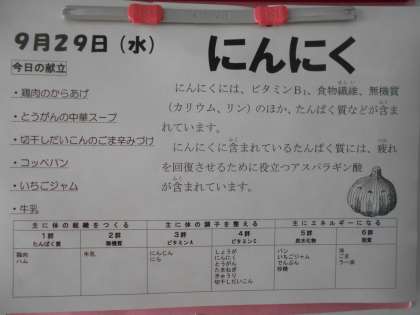 9月29日（水）
にんにく
今日の献立
・鶏肉のからあげ
・とうがんの中華スープ
・切干しだいこんのごま辛みづけ
・コッペパン
・いちごジャム
・牛乳
にんにくには、ビタミンB₁、食物繊維、無機質
（カリウム、リン）のほか、たんぱく質などが含ま
れています。
にんにくに含まれているたんぱく質には、疲れ
を回復させるために役立つアスパラギン酸
が含まれています。
主に体の組織をつくる 主に体の調子を整える 主にエネルギーになる
1群 2群 3群 4群 5群 6群
たんぱく質 無機質 ビタミンA ビタミンC 炭水化物 脂質
鶏肉 牛乳 にんじん しょうが パン 油
ハム にら にんにく いちごジャム ごま
とうがん でんぷん ラー油
たまねぎ 砂糖
きゅうり
切干しだいこん